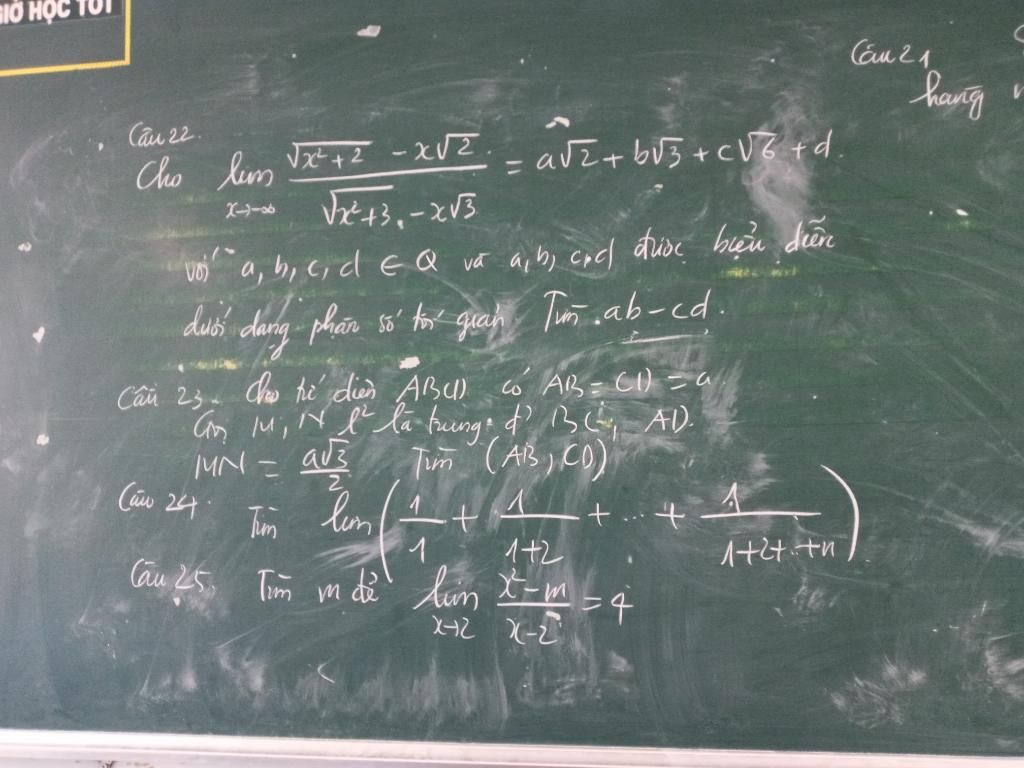 GIỜ HỌC TỐT
Câu 21
hang
Câu 22.
Cho lim x→-∞ (√(x²+2) - x√2) / (√(x²+3) - x√3) = a√2 + b√3 + c√6 + d.
với a, b, c, d ∈ Q và a, b, c, d được biểu diễn
dưới dạng phân số tối giản Tìm ab - cd.
Câu 23. Cho tứ diện ABCD có AB = CD = a.
Gọi M, N l² là trung đ' BC, AD.
MN = a√3/2 Tìm (AB, CD)
Câu 24. Tìm lim (1/1 + 1/(1+2) + ... + 1/(1+2+..+n))
Câu 25. Tìm m để lim x→2 (x²-m)/(x-2) = 4